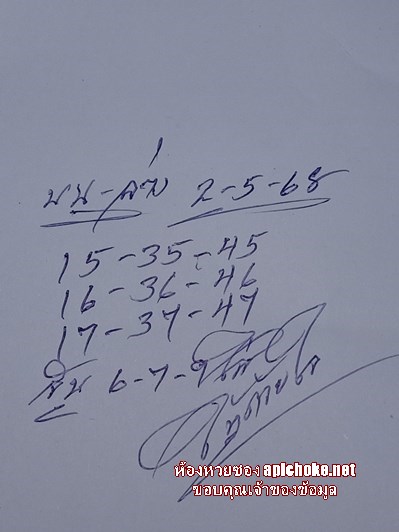 บน-ล่าง 2-5-68
15-35-45
16-36-46
17-37-47
6-7-
ห้องหวยซอง apichoke.net
ขอบคุณเจ้าของข้อมูล